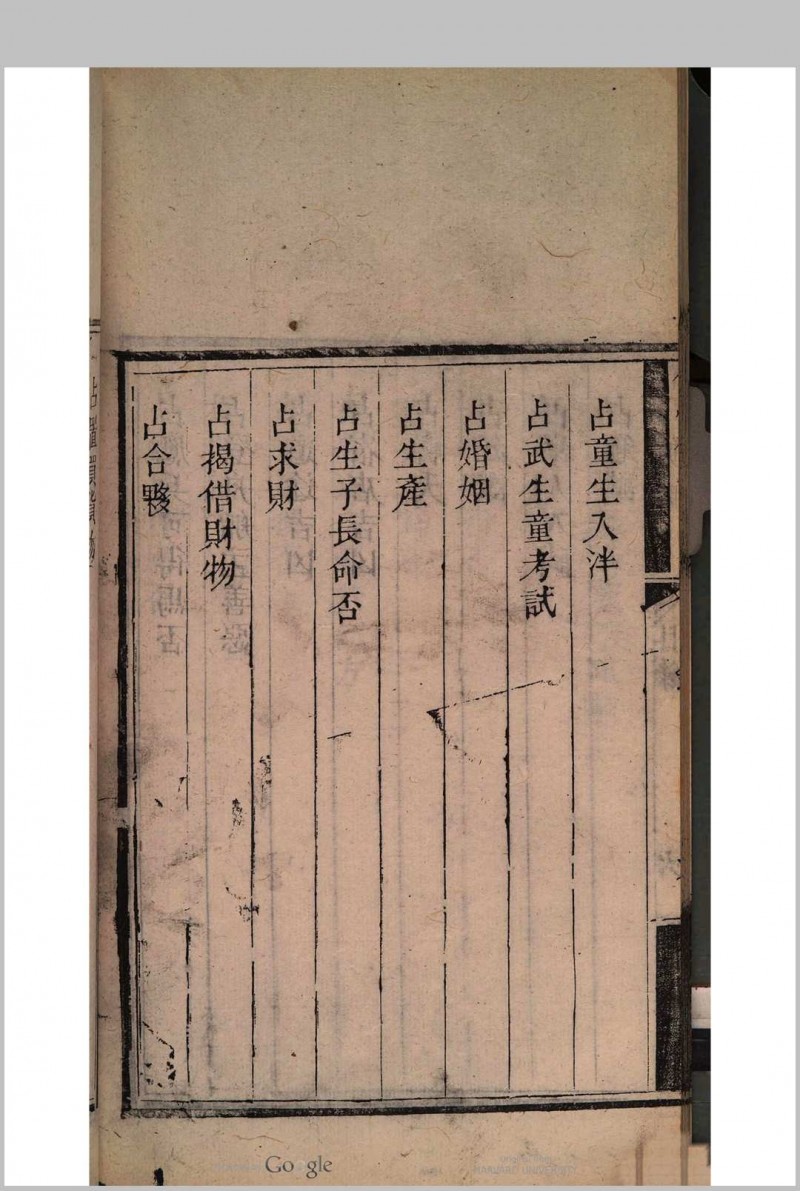 占童生入泮
占武生童考試
占婚姻
占生產
占生子長命否
占求財
占揭借財物
占合夥
Google